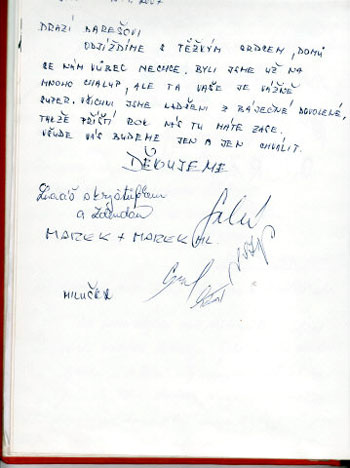 DRAZÍ BAREŠOVI
ODJÍŽDÍME S TĚŽKÝM SRDCEM, DOMŮ
SE NÁM VŮBEC NECHCE. BYLI JSME UŽ NA
MNOHO CHALUP, ALE TA VAŠE JE VÁŽNĚ
SUPER. VŠICHNI JSME NADŠENI Z BÁJEČNÉ DOVOLENÉ,
TAKŽE PŘÍŠTÍ ROK NÁS TU MÁTE ZASE.
VŠUDE VÁS BUDEME JEN A JEN CHVÁLIT.
DĚKUJEME
a Zdendou
MAREK + MAREK ML.
MILUŠKA